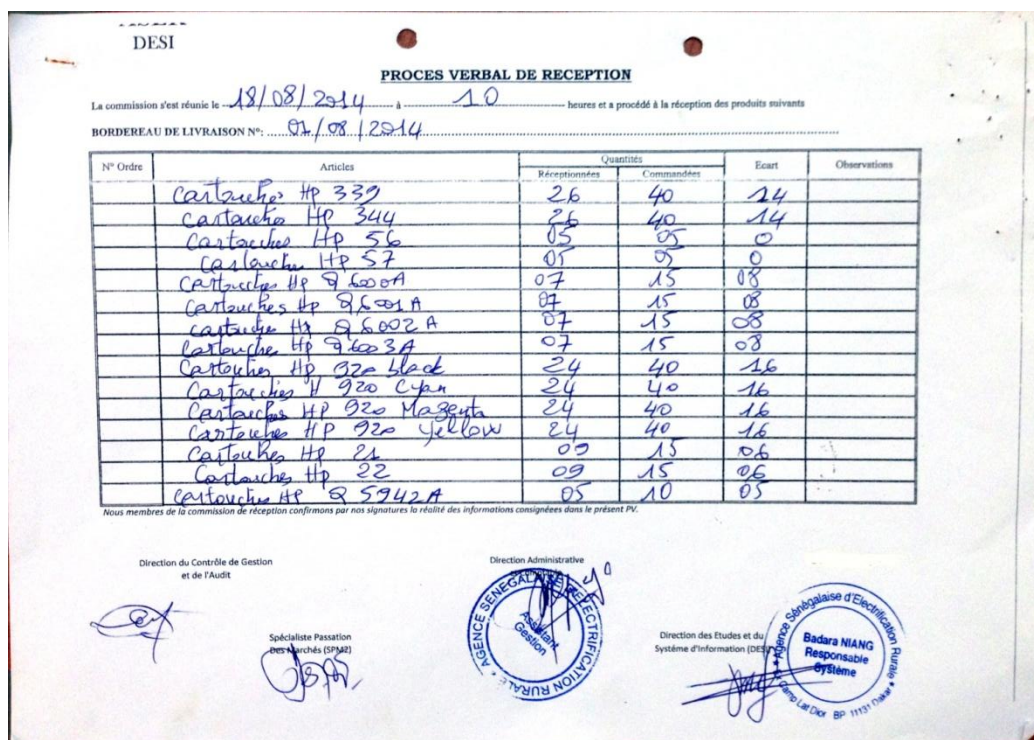 DESI
PROCES VERBAL DE RECEPTION
La commission s'est réunie le 18/08/2014 à 10 heures et a procédé à la réception des produits suivants
BORDEREAU DE LIVRAISON N°: 01/08/2014
N° Ordre Articles Quantités Ecart Observations
Réceptionnées Commandées
Cartouches HP 339 26 40 14
Cartouches HP 344 26 40 14
Cartouches HP 56 05 05 0
Cartouches HP 57 05 05 0
Cartouches HP Q6000A 07 15 08
Cartouches HP Q6001A 07 15 08
Cartouches HP Q6002A 07 15 08
Cartouches HP Q6003A 07 15 08
Cartouches HP 920 black 24 40 16
Cartouches H 920 Cyan 24 40 16
Cartouches HP 920 Magenta 24 40 16
Cartouches HP 920 Yellow 24 40 16
Cartouches HP 21 09 15 06
Cartouches HP 22 09 15 06
Cartouches HP Q5942A 05 10 05
Nous membres de la commission de réception confirmons par nos signatures la réalité des informations consignées dans le présent PV.
Direction du Contrôle de Gestion
et de l'Audit
Direction Administrative
AGENCE SENEGALAISE D'ELECTRIFICATION RURALE
Assistant
Gestion
Spécialiste Passation
Des Marchés (SPM2)
Direction des Etudes et du
Système d'Information (DESI)
Agence Sénégalaise d'Electrification Rurale
Badara NIANG
Responsable
Système
Camp Lat Dior BP 11131 Dakar